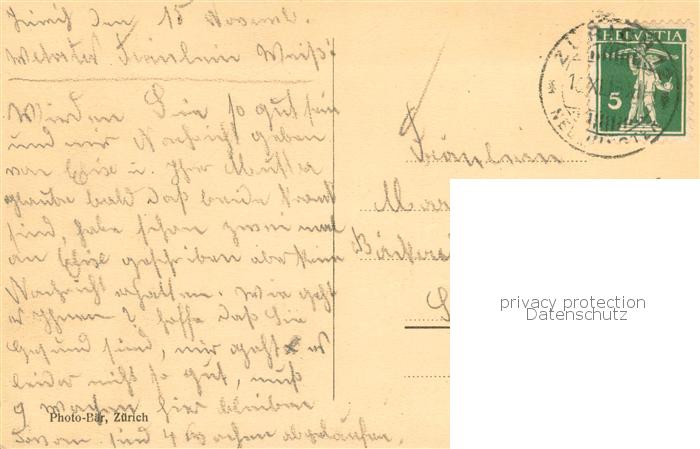 Zürich den 15 Novemb.
Wertestes Fräulein Weiß!
Würden Sie so gut sein
und mir Nachricht geben
von Elise u. Ihrer Mutter
glaube bald daß beide krank
sind, habe schon zwei mal
an Elise geschrieben aber keine
Nachricht erhalten. Wie geht
es Ihnen? hoffe daß Sie
Gesund sind, mir geht es
leider nicht so gut, muß
9 Wochen hier bleiben
davon sind 4 Wochen abgelaufen.
Photo-Bär, Zürich
HELVETIA
5
ZÜRICH
NEUMÜNSTER
Fräulein
Bäckerei
privacy protection
Datenschutz